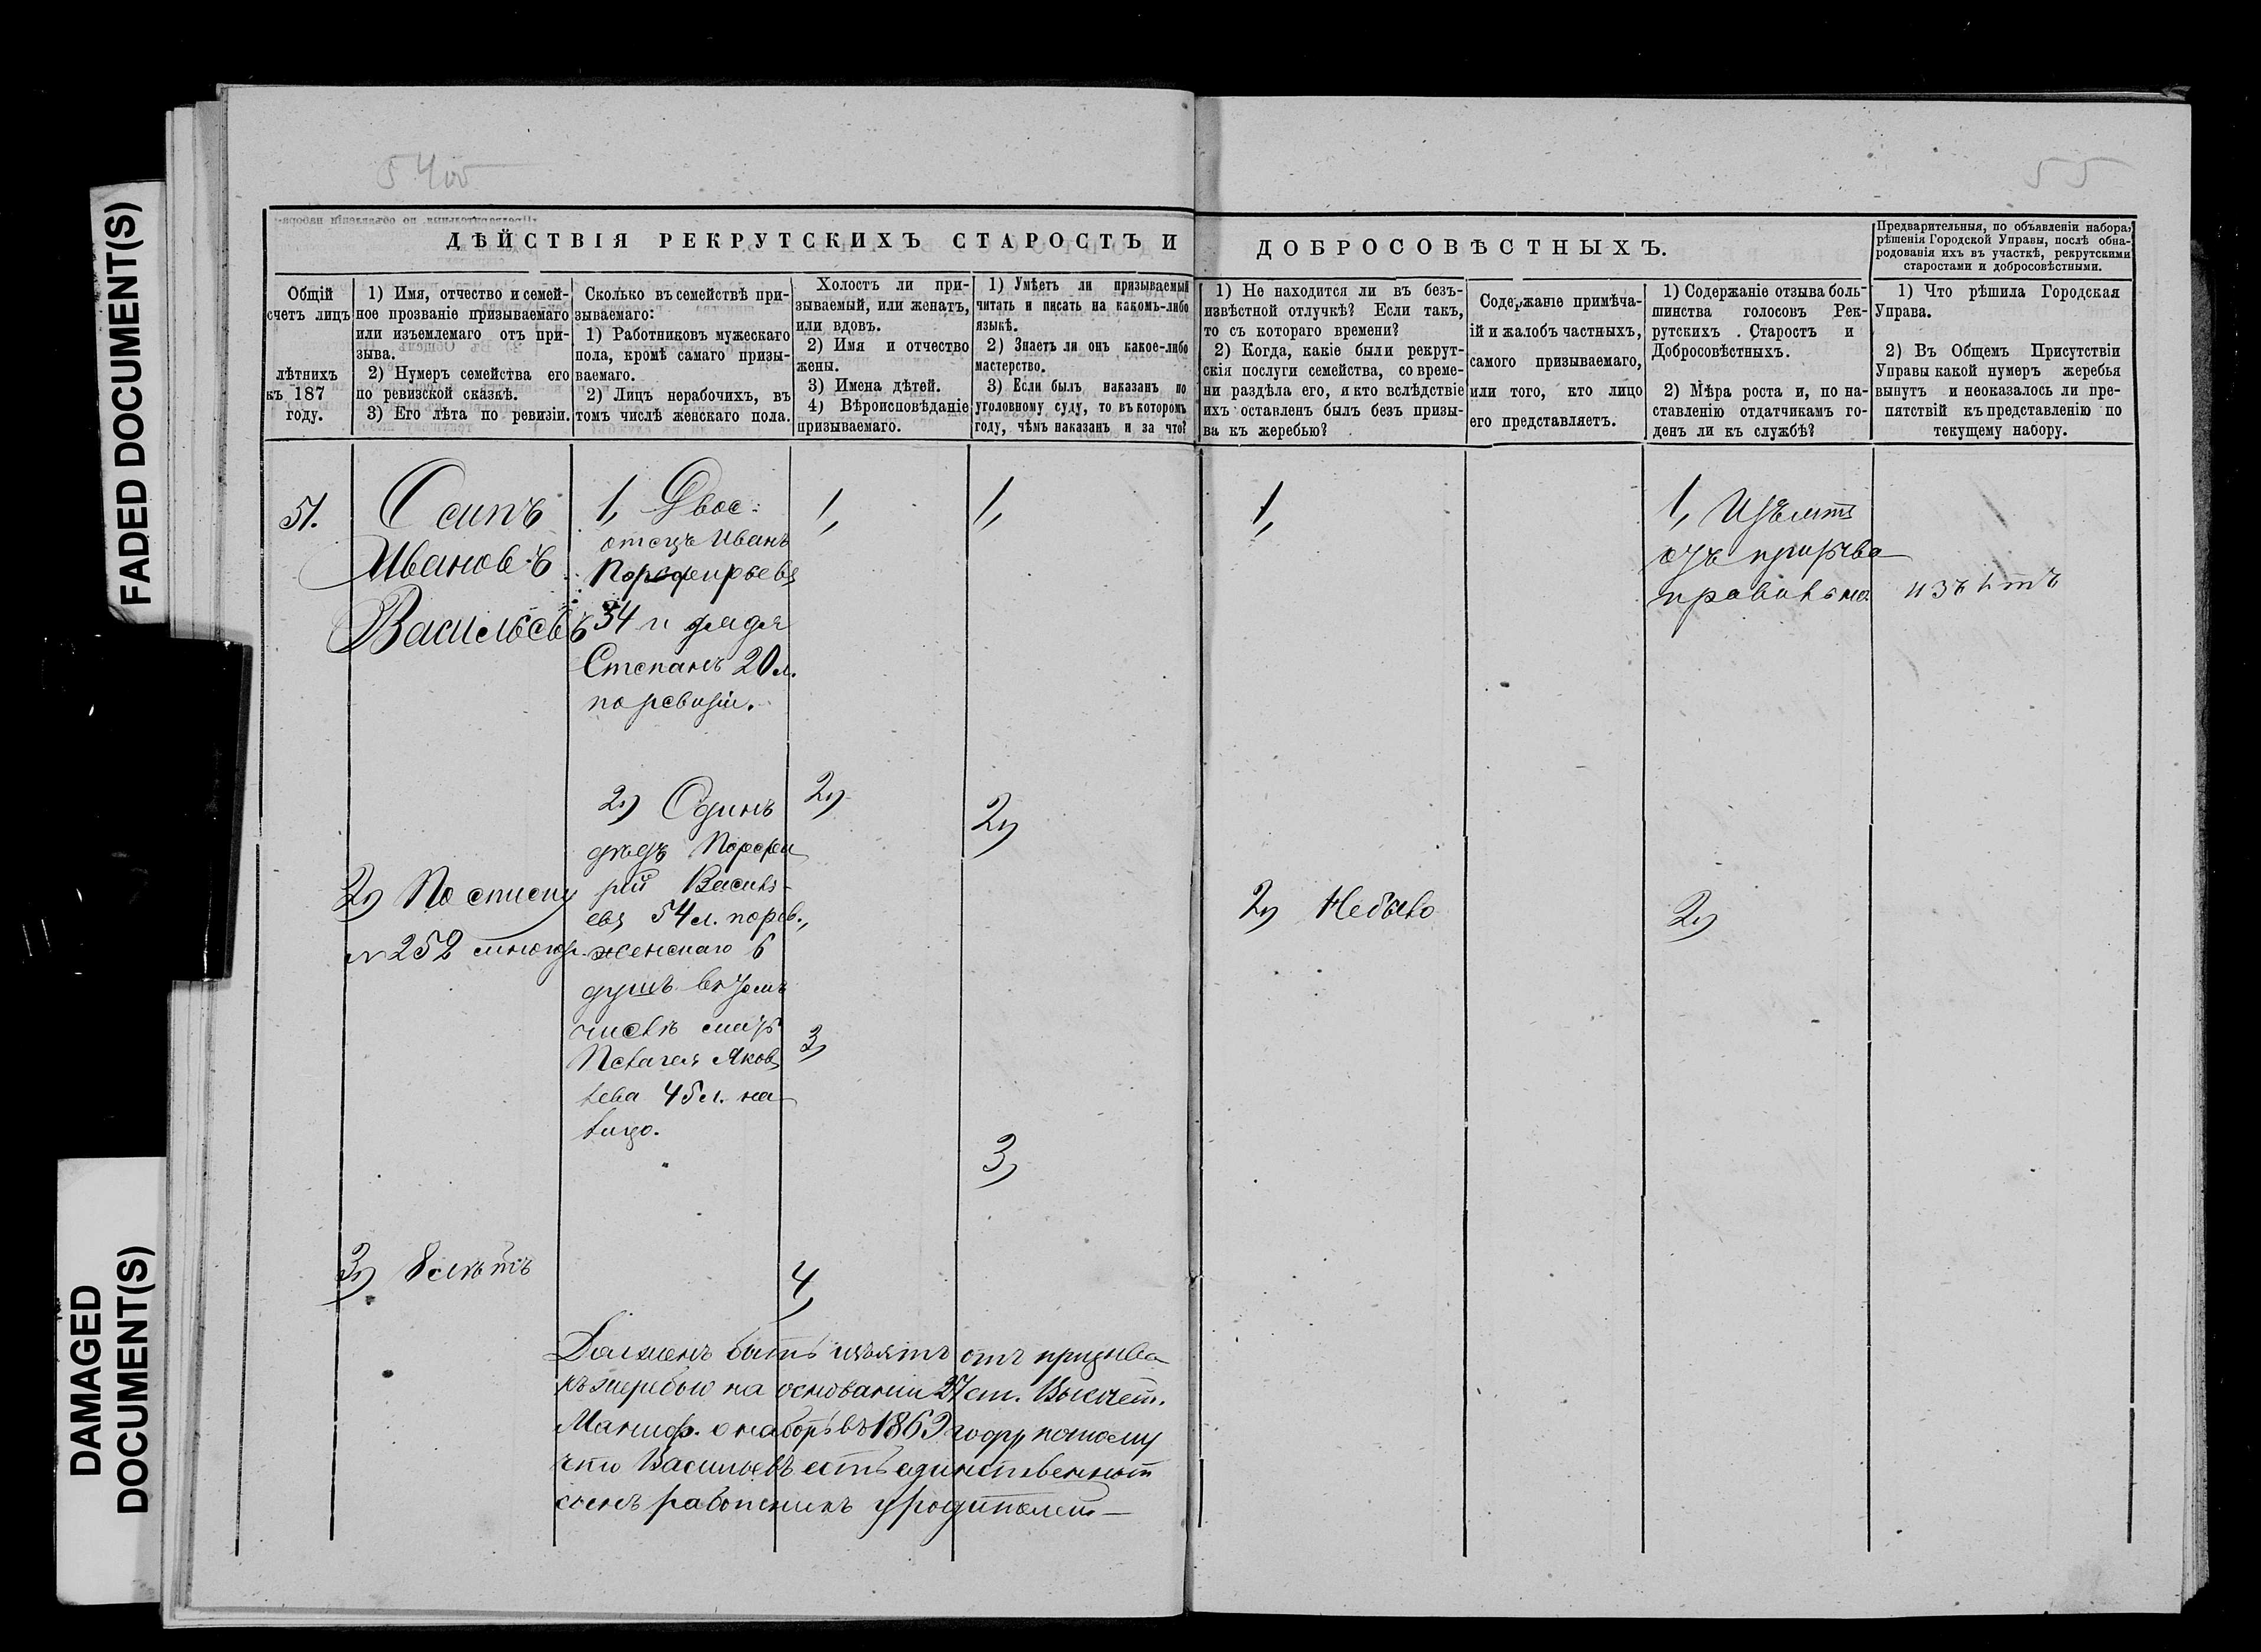 FADED DOCUMENT(S)
DAMAGED
DOCUMENT(S)
54об
55
ДѢЙСТВІЯ РЕКРУТСКИХЪ СТАРОСТЪ И ДОБРОСОВѢСТНЫХЪ.
Предварительныя, по объявленіи набора,
рѣшенія Городской Управы, послѣ обна-
родованія ихъ въ участкѣ, рекрутскими
старостами и добросовѣстными.
Общій
счетъ лицъ
лѣтнихъ
къ 187
году.
1) Имя, отчество и семей-
ное прозваніе призываемаго
или изъемлемаго отъ при-
зыва.
2) Нумеръ семейства его
по ревизской сказкѣ.
3) Его лѣта по ревизіи.
Сколько въ семействѣ при-
зываемаго:
1) Работниковъ мужескаго
пола, кромѣ самаго призы-
ваемаго.
2) Лицъ нерабочихъ, въ
томъ числѣ женскаго пола.
Холостъ ли при-
зываемый, или женатъ,
или вдовъ.
2) Имя и отчество
жены.
3) Имена дѣтей.
4) Вѣроисповѣданіе
призываемаго.
1) Умѣетъ ли призываемый
читать и писать на какомъ-либо
языкѣ.
2) Знаетъ ли онъ какое-либо
мастерство.
3) Если былъ наказанъ по
уголовному суду, то въ которомъ
году, чѣмъ наказанъ и за что?
1) Не находится ли въ безъ-
извѣстной отлучкѣ? Если такъ,
то съ котораго времени?
2) Когда, какіе были рекрут-
скія послуги семейства, со време-
ни раздѣла его, и кто вслѣдствіе
ихъ оставленъ былъ безъ призы-
ва къ жеребью?
Содержаніе примѣча-
ій и жалобъ частныхъ,
самого призываемаго,
или того, кто лицо
его представляетъ.
1) Содержаніе отзыва боль-
шинства голосовъ Рек-
рутскихъ Старостъ и
Добросовѣстныхъ.
2) Мѣра роста и, по на-
ставленію отдатчикамъ го-
денъ ли къ службѣ?
1) Что рѣшила Городская
Управа.
2) Въ Общемъ Присутствіи
Управы какой нумеръ жеребья
вынутъ и неоказалось ли пре-
пятствій къ представленію по
текущему набору.
51.
Осипъ
Ивановъ
Васильевъ
2) По списку
№ 252 многор.
3) 8 лѣтъ
1, Двое:
отецъ Иванъ
Порфирьевъ
34 и дядя
Степанъ 20 л.
по ревизіи.
2) Одинъ
дѣдъ Порфи
рій Василь-
евъ 54 л. по рев.,
женскаго 6
душъ въ томъ
числѣ мать
Пелагея Яков
лева 45 л. на
лицо.
1,
2)
3)
4)
1,
2)
3)
1,
2) Небыло
1, Изъять
отъ призыва
правильно
2)
изъятъ
Долженъ быть изъятъ отъ призыва
къ жеребью на основаніи 27 ст. Высочайш.
Маниф. о наборѣ въ 1869 году, потому
что Васильевъ есть единственный
сынъ работникъ у родителей—